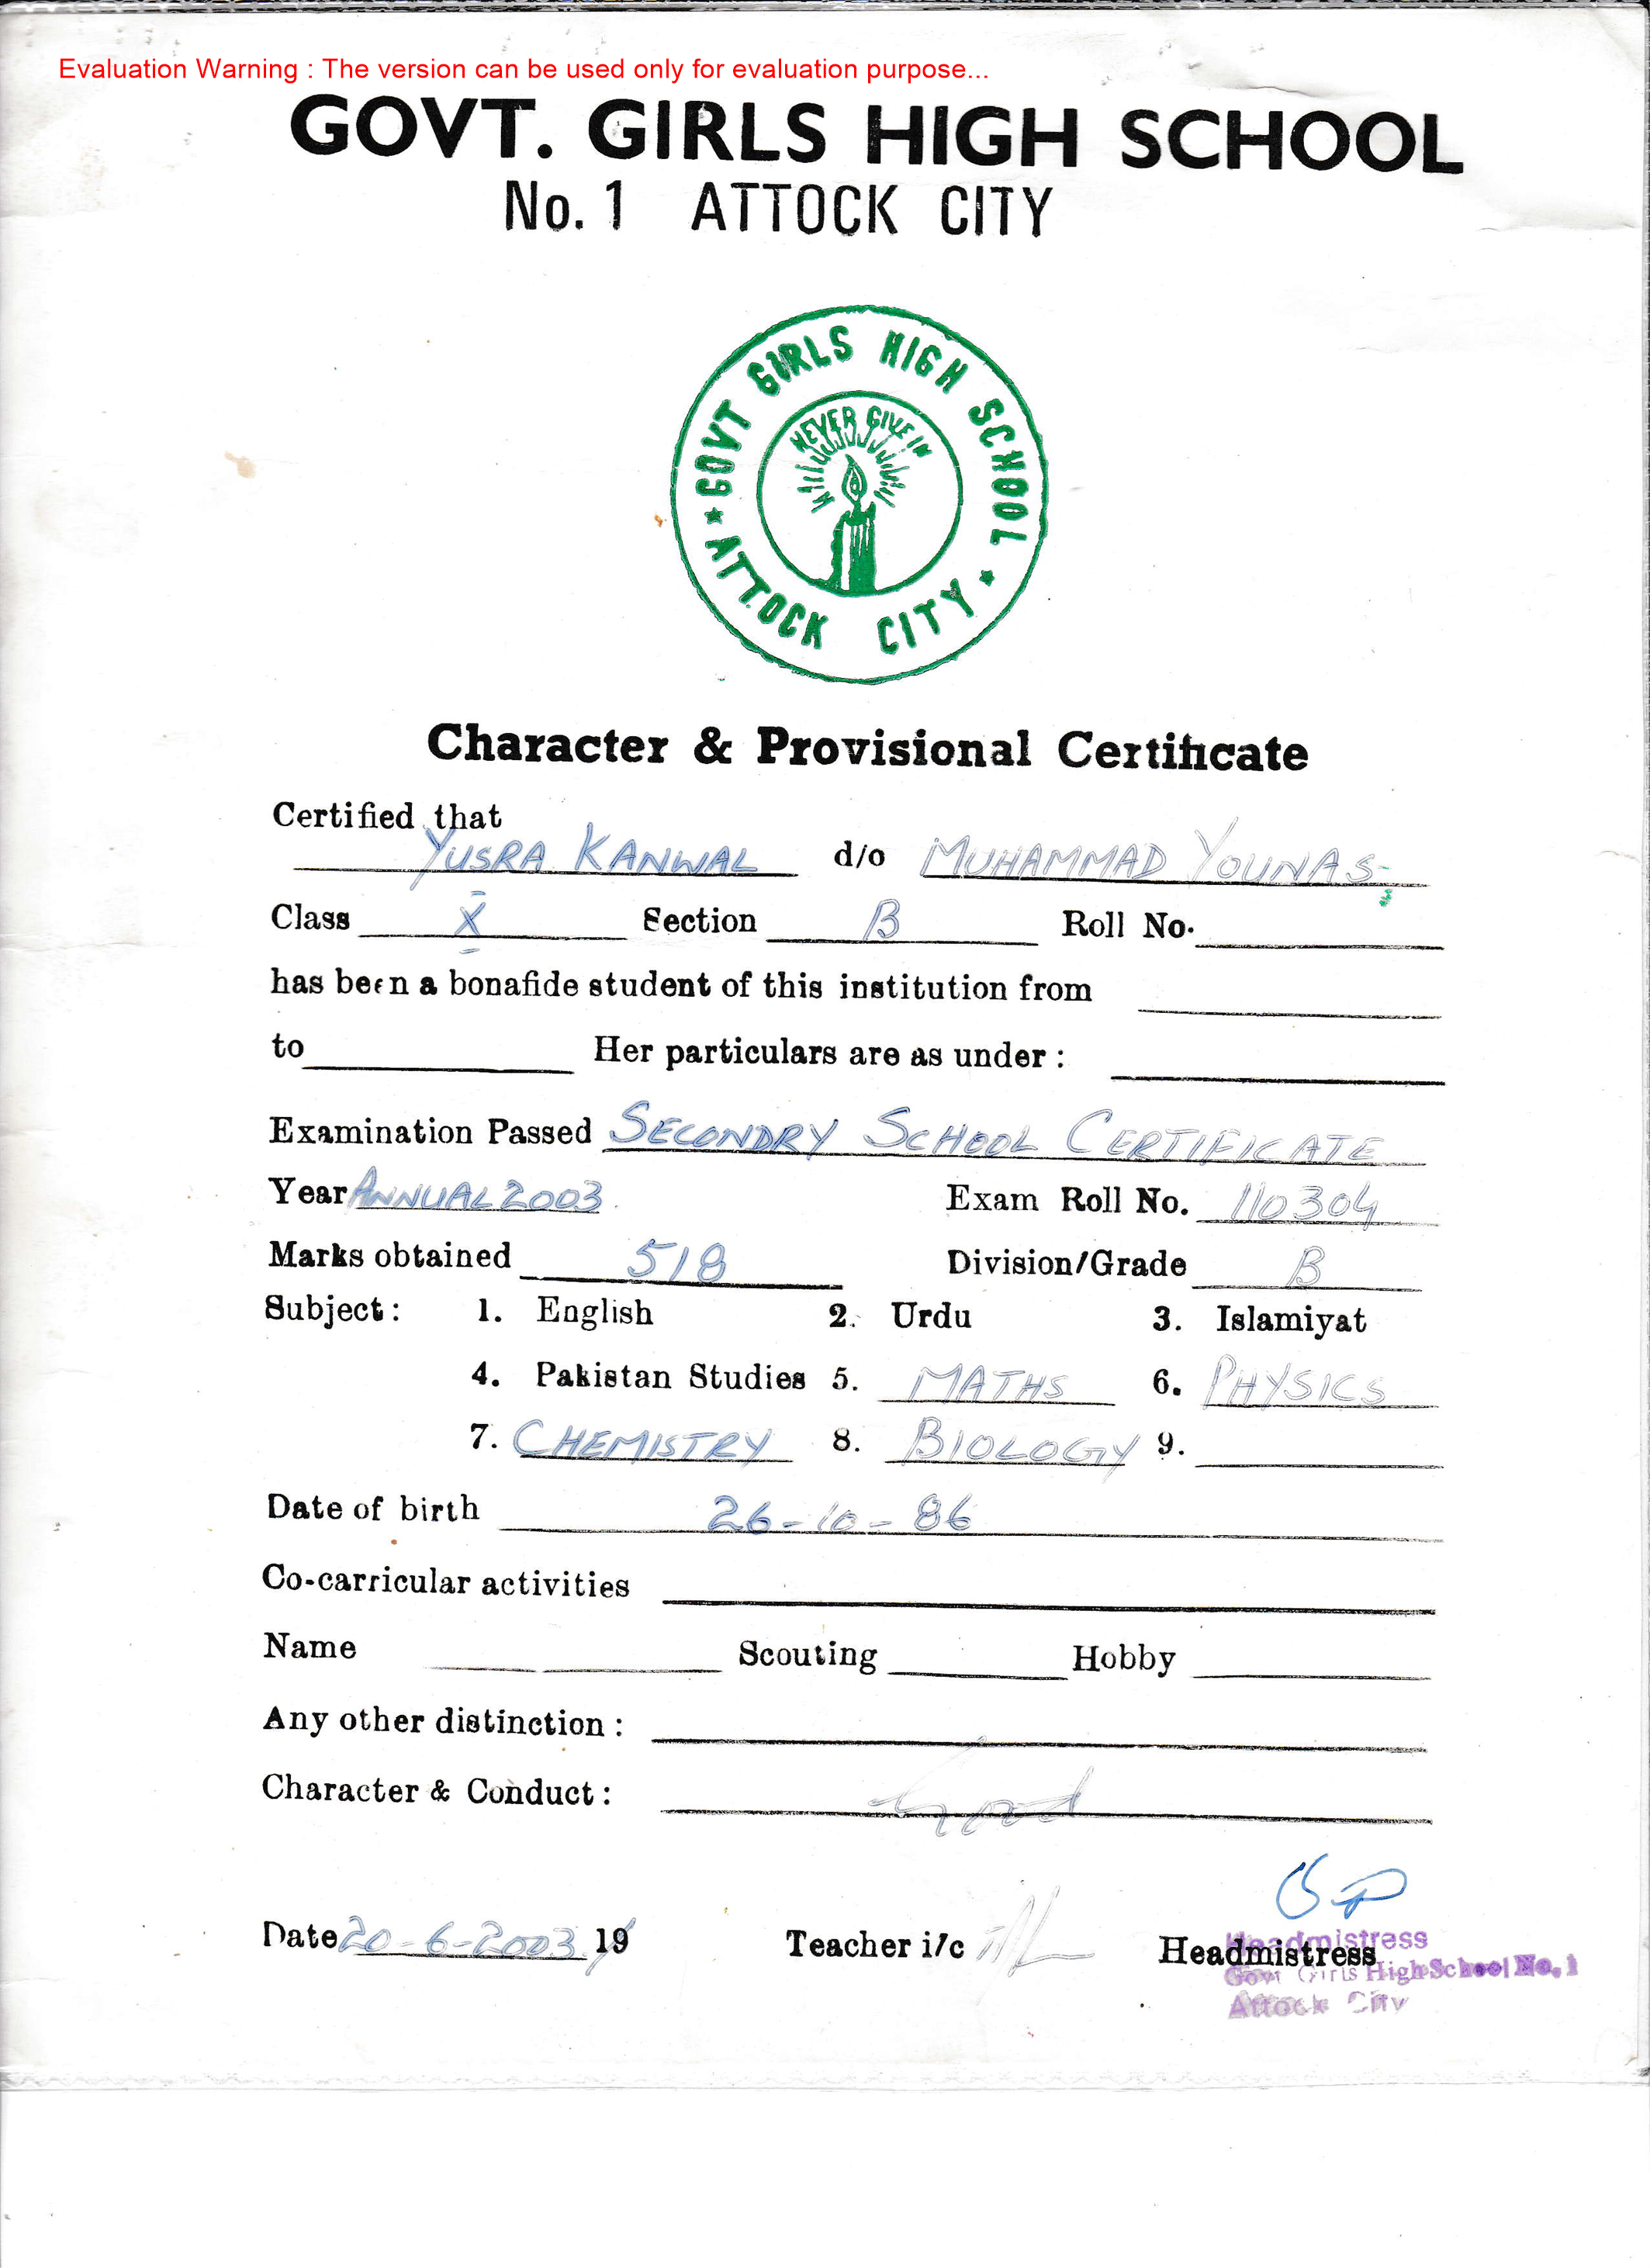 Evaluation Warning : The version can be used only for evaluation purpose...
GOVT. GIRLS HIGH SCHOOL
No. 1 ATTOCK CITY
GOVT GIRLS HIGH SCHOOL
NEVER GIVE IN
ATTOCK CITY
Character & Provisional Certificate
Certified that
YUSRA KANWAL d/o MUHAMMAD YOUNAS
Class X Section B Roll No.
has been a bonafide student of this institution from
to Her particulars are as under :
Examination Passed SECONDRY SCHOOL CERTIFICATE
Year ANNUAL 2003 Exam Roll No. 110304
Marks obtained 518 Division/Grade B
Subject : 1. English 2. Urdu 3. Islamiyat
4. Pakistan Studies 5. MATHS 6. PHYSICS
7. CHEMISTRY 8. BIOLOGY 9.
Date of birth 26-10-86
Co-carricular activities
Name Scouting Hobby
Any other distinction :
Character & Conduct : Good
Date 20-6-2003 19 Teacher i/c Headmistress
Headmistress
Govt Girls High School No. 1
Attock City